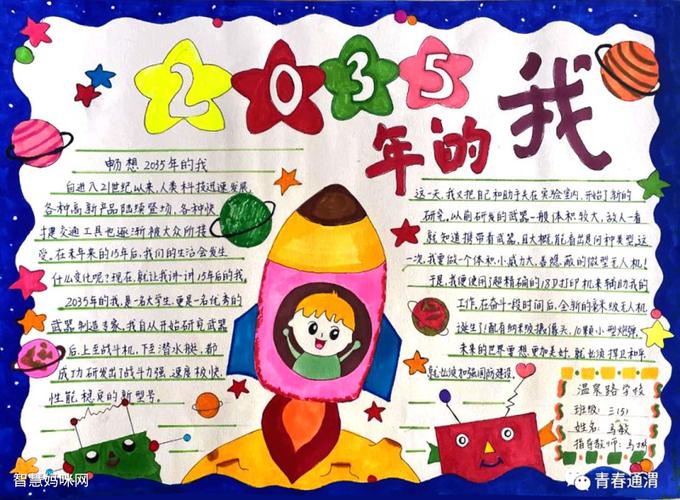 2035
年的我
畅想2035年的我
自进入21世纪以来,人类科技迅速发展,
各种高新产品陆续登场,各种快
捷交通工具也逐渐被大众所接
受。在未来的15年后,我们的生活会发生
什么变化呢?现在,就让我讲讲15年后的我。
2035年的我,是一名大学生,更是一名优秀的
武器制造专家,我自从开始研究武器
后,上至战斗机,下至潜水艇,都
成功研发出了战斗力强,速度极快,
性能稳良的新型号。
这一天,我又把自己和助手关在实验室内,开始了新的
研究,以前研发的武器一般体积较大,敌人一看
就知道携带着武器,且大概能看出是何种类型,这
一次,我要做一个体积小威力大,善隐蔽的微型无人机!
于是,我便使用了超精确的18D打印机来辅助我的
工作,在奋斗一段时间后,全新的毫米级无人机
诞生!配有纳米级摄像头,10颗小型炮弹,
未来的世界要想更加美好,就必须捍卫和平
就必须加强国防建设。
温泉路学校
班级:三(5)
姓名:马敏
指导教师:马
智慧妈咪网
青春通渭